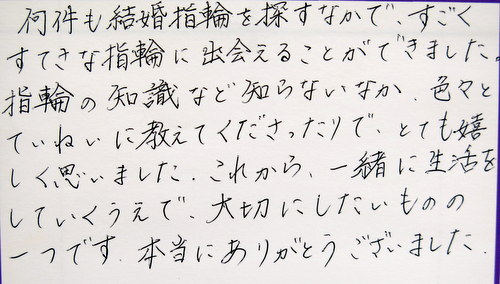 何件も結婚指輪を探すなかで、すごく
すてきな指輪に出会えることができました。
指輪の知識など知らないなか、色々と
ていねいに教えてくださったりで、とても嬉
しく思いました。これから、一緒に生活を
していくうえで、大切にしたいものの
一つです。本当にありがとうございました。